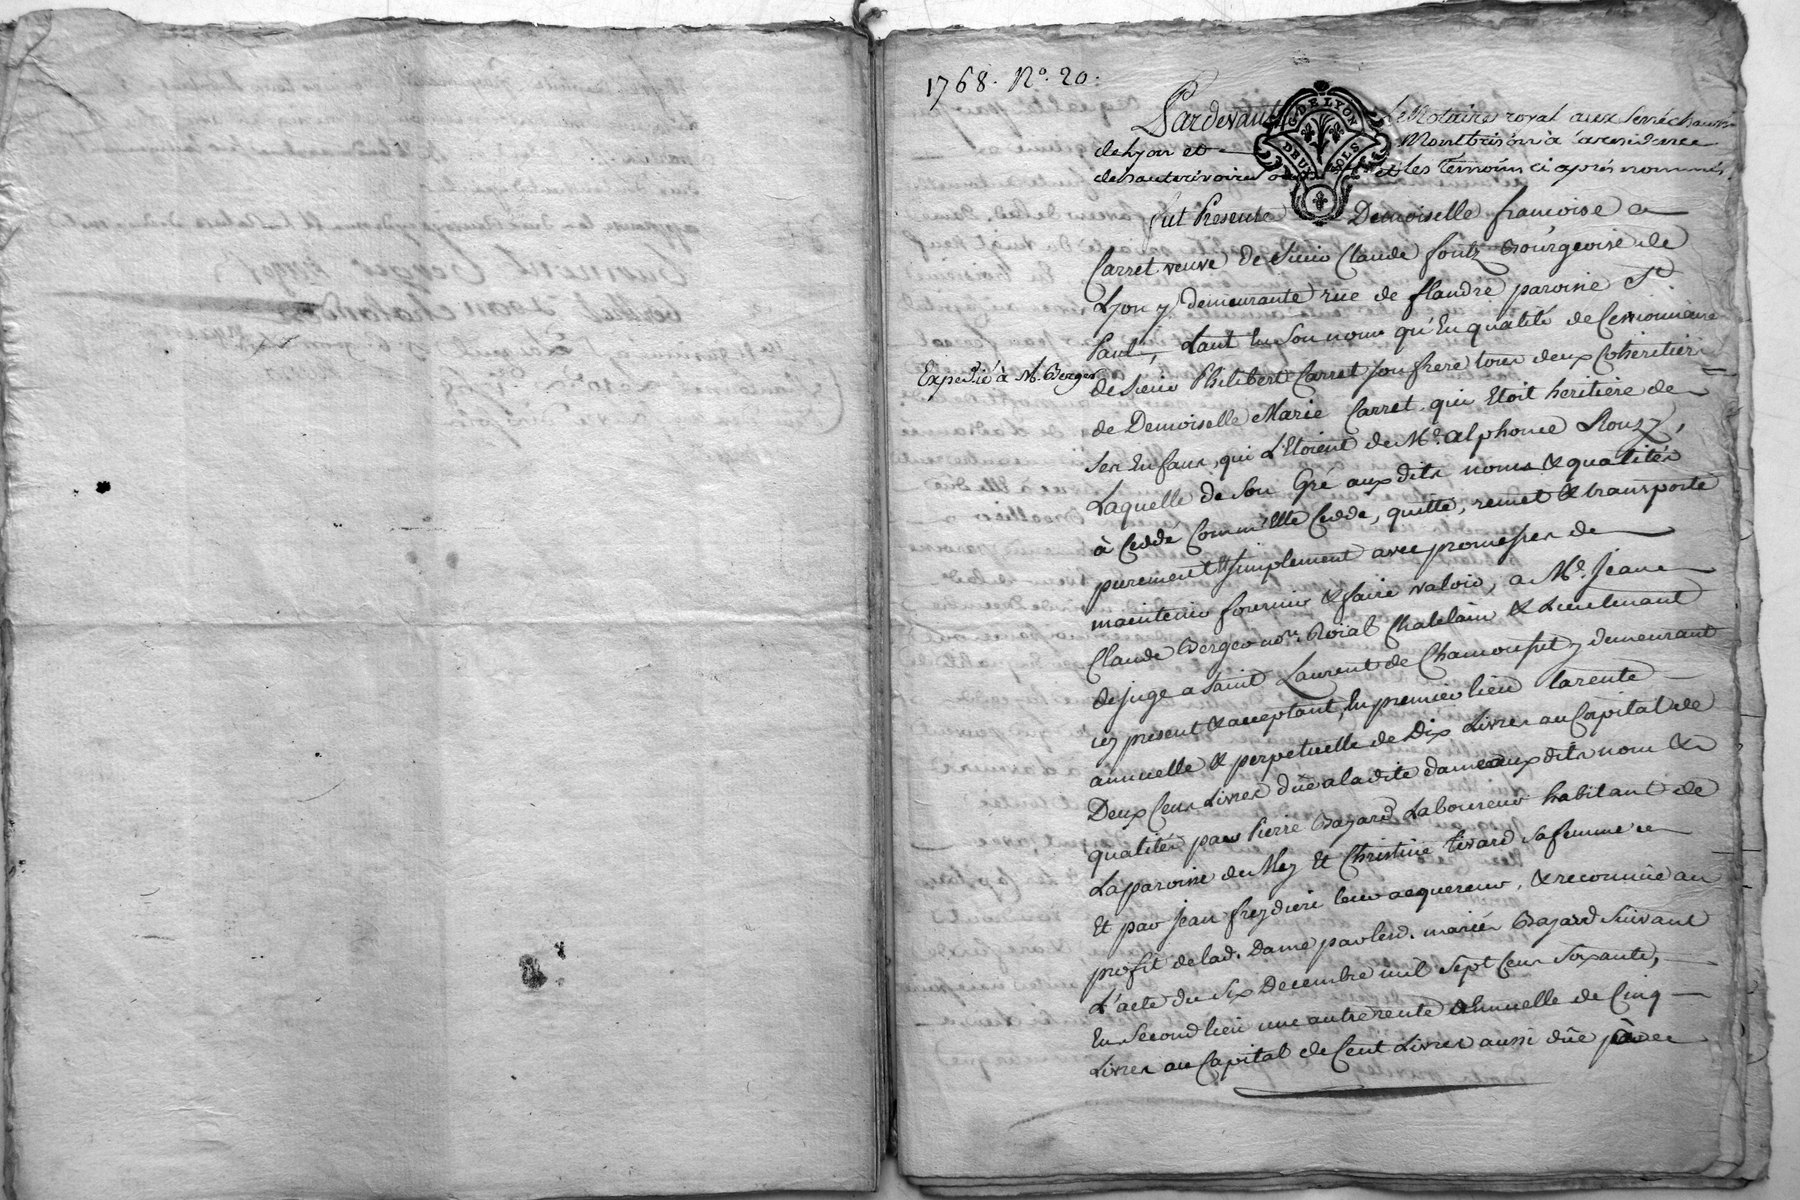 1768. No. 20.
Pardevant le Notaire royal aux sénéchaussées
de Lyon et Montbrison à la residence
et les temoins ci après nommés,
G. DE LYON
DEUX SOLS
fut Presente Demoiselle francoise
Carret veuve de Sieur Claude foulz Bourgeoise de
Lyon y demeurante rüe de flandre paroisse St.
Paul, tant en son nom qu'en qualité de Cessionnaire
Expedié à Me. Berger
de Sieur Philibert Carret son frere tous deux Coheritiers
de Demoiselle Marie Carret, qui Etoit heritiere de
ses Enfans, qui L'Etoient de Me. alphonce Rouzy,
Laquelle de son Gre aux dits noms & qualités
à Cedde Comm'Elle Cedde, quitte, remet & transporte
purement & simplement avec promesses de
maintenir fournir & faire valoir, a Me. Jean
Claude Berger nore. Roial Chatelain & Lieutenant
de juge a Saint Laurent de Chamousset y demeurant
icy present & acceptant, En premier lieu la rente
annuelle & perpetuelle de Dix Livres au Capital de
Deux Cens Livres düe a ladite dame aux dits nom &
qualités par Pierre Bazard Laboureur habitant de
La paroisse du Mey Et Christine tivard sa femme
Et par jean freydiere leur acquereur, & reconnüe au
profit de lad. Dame par lesd. mariés Bazard suivant
L'acte du Six Decembre mil sept Cens soixante,
En second lieu une autre rente annuelle de Cinq
Livres au Capital de Cent Livres aussi düe par